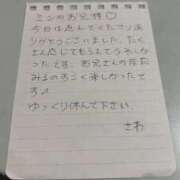 ミンのお兄様♡
今日は遊んでくれてアリ
がとうございました。たく
さん感じてもらえてうれしか
ったです。お兄さんの反応
みるのすごく楽しかったで
す♪
ゆっくり休んで下さい。
さわ